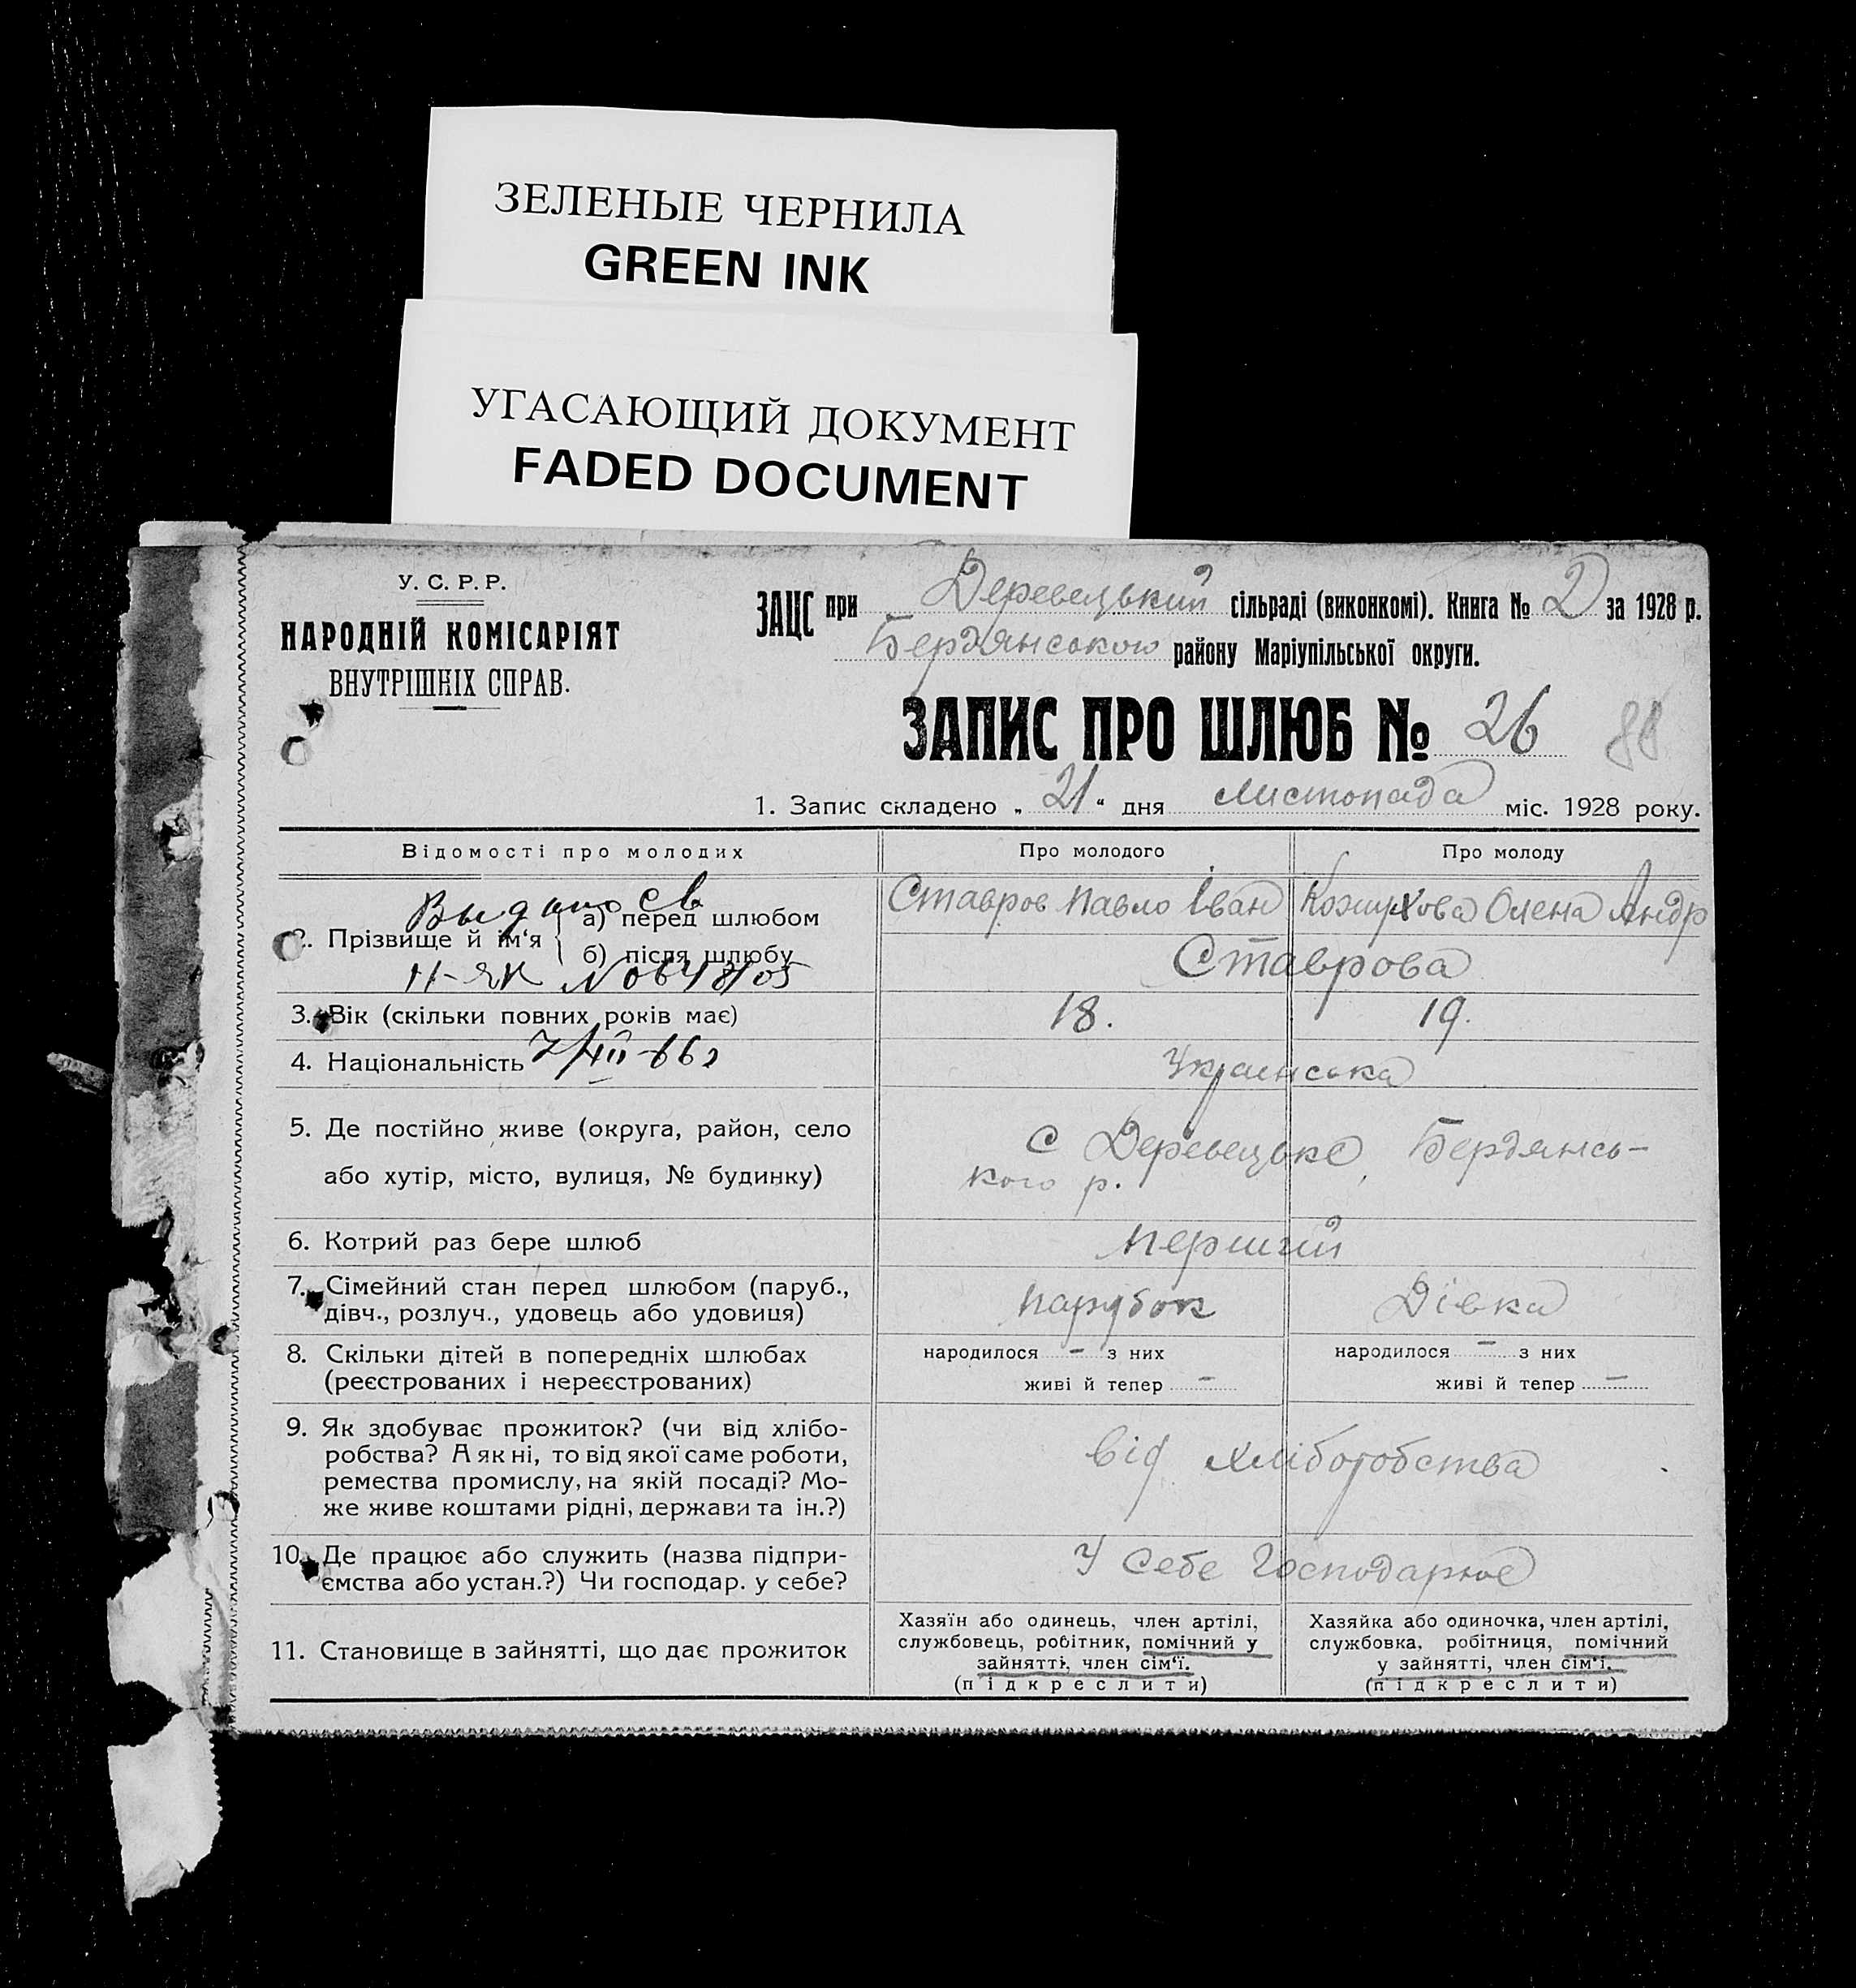 ЗЕЛЕНЫЕ ЧЕРНИЛА
GREEN INK
УГАСАЮЩИЙ ДОКУМЕНТ
FADED DOCUMENT
У. С. Р. Р.
НАРОДНІЙ КОМІСАРІЯТ
ВНУТРІШНІХ СПРАВ.
ЗАЦС при Деревецький сільраді (виконкомі). Книга № 2 за 1928 р.
Бердянського району Маріупільської округи.
ЗАПИС ПРО ШЛЮБ № 26 88
1. Запис складено „21“ дня листопада міс. 1928 року.
Відомості про молодих Про молодого Про молоду
2. Прізвище й ім‘я
а) перед шлюбом Ставров Павло Іван Кожухова Олена Андр
б) після шлюбу Ставрова
3. Вік (скільки повних років має) 18. 19.
4. Національність Українська
5. Де постійно живе (округа, район, село с Деревецьке, Бердянсь-
або хутір, місто, вулиця, № будинку) кого р.
6. Котрий раз бере шлюб перший
7. Сімейний стан перед шлюбом (паруб., парубок Дівка
дівч., розлуч., удовець або удовиця)
8. Скільки дітей в попередніх шлюбах народилося – з них народилося – з них
(реєстрованих і нереєстрованих) живі й тепер – живі й тепер –
9. Як здобуває прожиток? (чи від хлібо-
робства? А як ні, то від якої саме роботи, від хліборобства
ремества промислу, на якій посаді? Мо-
же живе коштами рідні, держави та ін.?)
10. Де працює або служить (назва підпри- У себе господарює
ємства або устан.?) Чи господар. у себе?
11. Становище в зайнятті, що дає прожиток
Хазяїн або одинець, член артілі,
службовець, робітник, помічний у
зайнятті, член сім‘ї.
(підкреслити)
Хазяйка або одиночка, член артілі,
службовка, робітниця, помічний
у зайнятті, член сім‘ї.
(підкреслити)